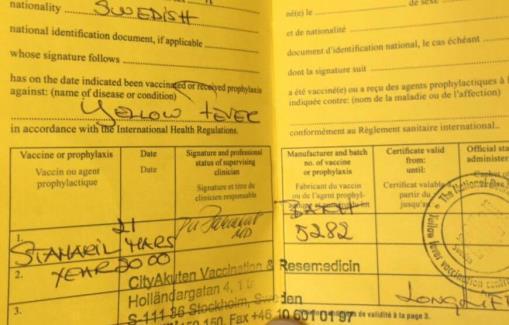 nationality SWEDISH
national identification document, if applicable
whose signature follows
has on the date indicated been vaccinated or received prophylaxis
against: (name of disease or condition)
YELLOW FEVER
in accordance with the International Health Regulations.
Vaccine or prophylaxis
Vaccin ou agent
prophylactique
Date
Date
Signature and professional
status of supervising
clinician
Signature et titre du
clinicien responsable
1.
STAMARIL
21
MARS
MD
2.
YEAR 2000
3.
CityAkuten Vaccination & Resemedicin
Holländargatan 4, 1
S-111 36 Stockholm, Sweden
150, Fax +46 10 601 01 97
né(e) le
de sexe
et de nationalité
document d'identification national, le cas échéant
dont la signature suit
a été vacciné(e) ou a reçu des agents prophylactiques à
indiquée contre: (nom de la maladie ou de l'affection)
conformément au Règlement sanitaire international..
Manufacturer and batch
no. of vaccine
or prophylaxis
Fabricant du vaccin
ou de l'agent prophyl-
Certificate valid
from:
until:
Certificat valable
partir du
jusqu'au
Official sta
administer
5282
The National
Yellow fever vaccination
de validité à la page 3.